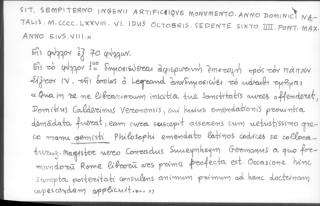 SIT. SEMPITERNO INGENII ARTIFICIIQVE MONVMENTO. ANNO DOMINICI NA-
TALIS. M.CCCC.LXXVIII. VI. IDVS OCTOBRIS. SEDENTE SIXTO IIII. PONT. MAX.
ANNO EIVS. VIII.»
Εἰς φύλλον ἐξ 70 φύλλων.
Εἰς τὸ φύλλον 1ον δημοσιεύεται ἀφιερωτικὴ ἐπιστολὴ πρὸς τὸν πάπαν
Σίξτον IV, τῆς ὁποίας ὁ Legrand ἀναδημοσιεύει τὸ
«Qua in re ne librariorum inscitia tuæ sanctitatis aures offenderet,
Domitius Calderinus Veronensis, cui huius emendationis prouintia
demãdata fuerat; eam curã suscepit asserens cum uetustissimo græ-
co manu gemisti Philosophi emendato latinos codices se collatu-
turuȝ. Magister uero Conradus Sweynheym Germanus a quo for-
mandorũ Rome librorũ ars primũ profecta est Occasione hinc
sumpta posteritati consulens animum primum ad hanc doctrinam
capescendam applicuit.....»